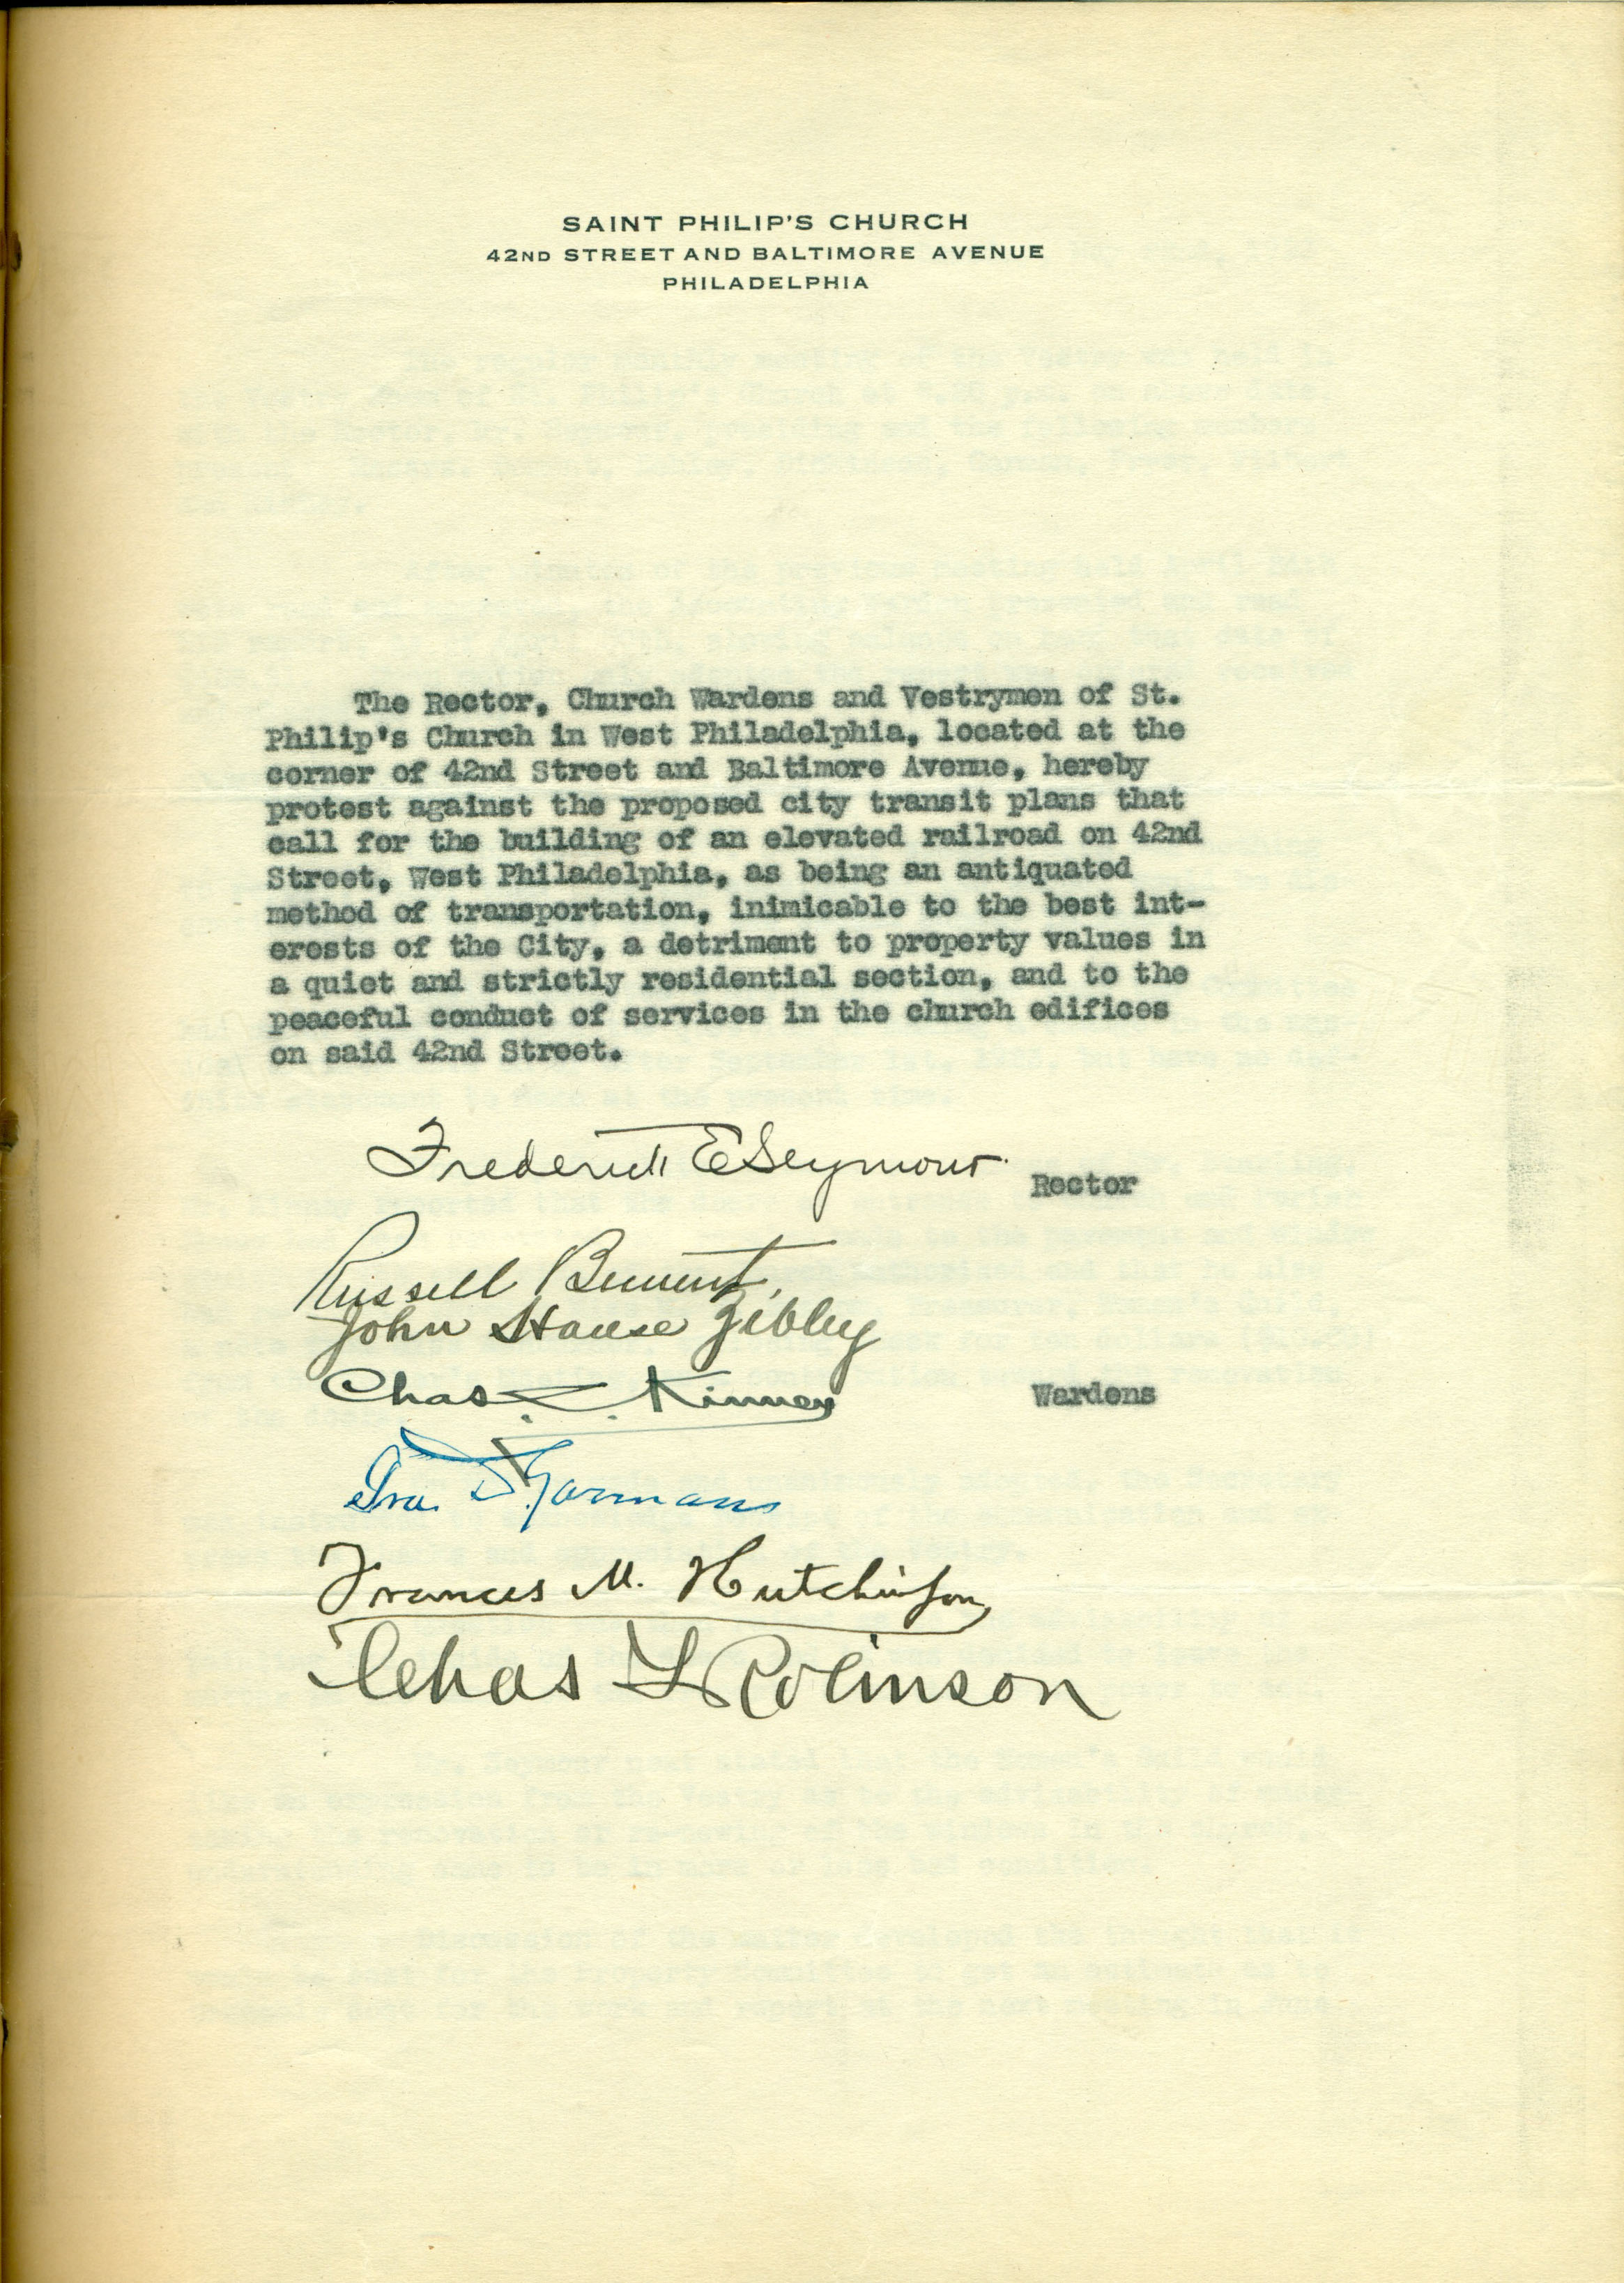 SAINT PHILIP'S CHURCH
42ND STREET AND BALTIMORE AVENUE
PHILADELPHIA
The Rector, Church Wardens and Vestrymen of St.
Philip's Church in West Philadelphia, located at the
corner of 42nd Street and Baltimore Avenue, hereby
protest against the proposed city transit plans that
call for the building of an elevated railroad on 42nd
Street, West Philadelphia, as being an antiquated
method of transportation, inimicable to the best int-
erests of the City, a detriment to property values in
a quiet and strictly residential section, and to the
peaceful conduct of services in the church edifices
on said 42nd Street.
Frederick E Seymour Rector
Russell Bement
John Hause
Chas Kinney Wardens
Ira Garman
Frances M. Hutchinson
Chas L Robinson